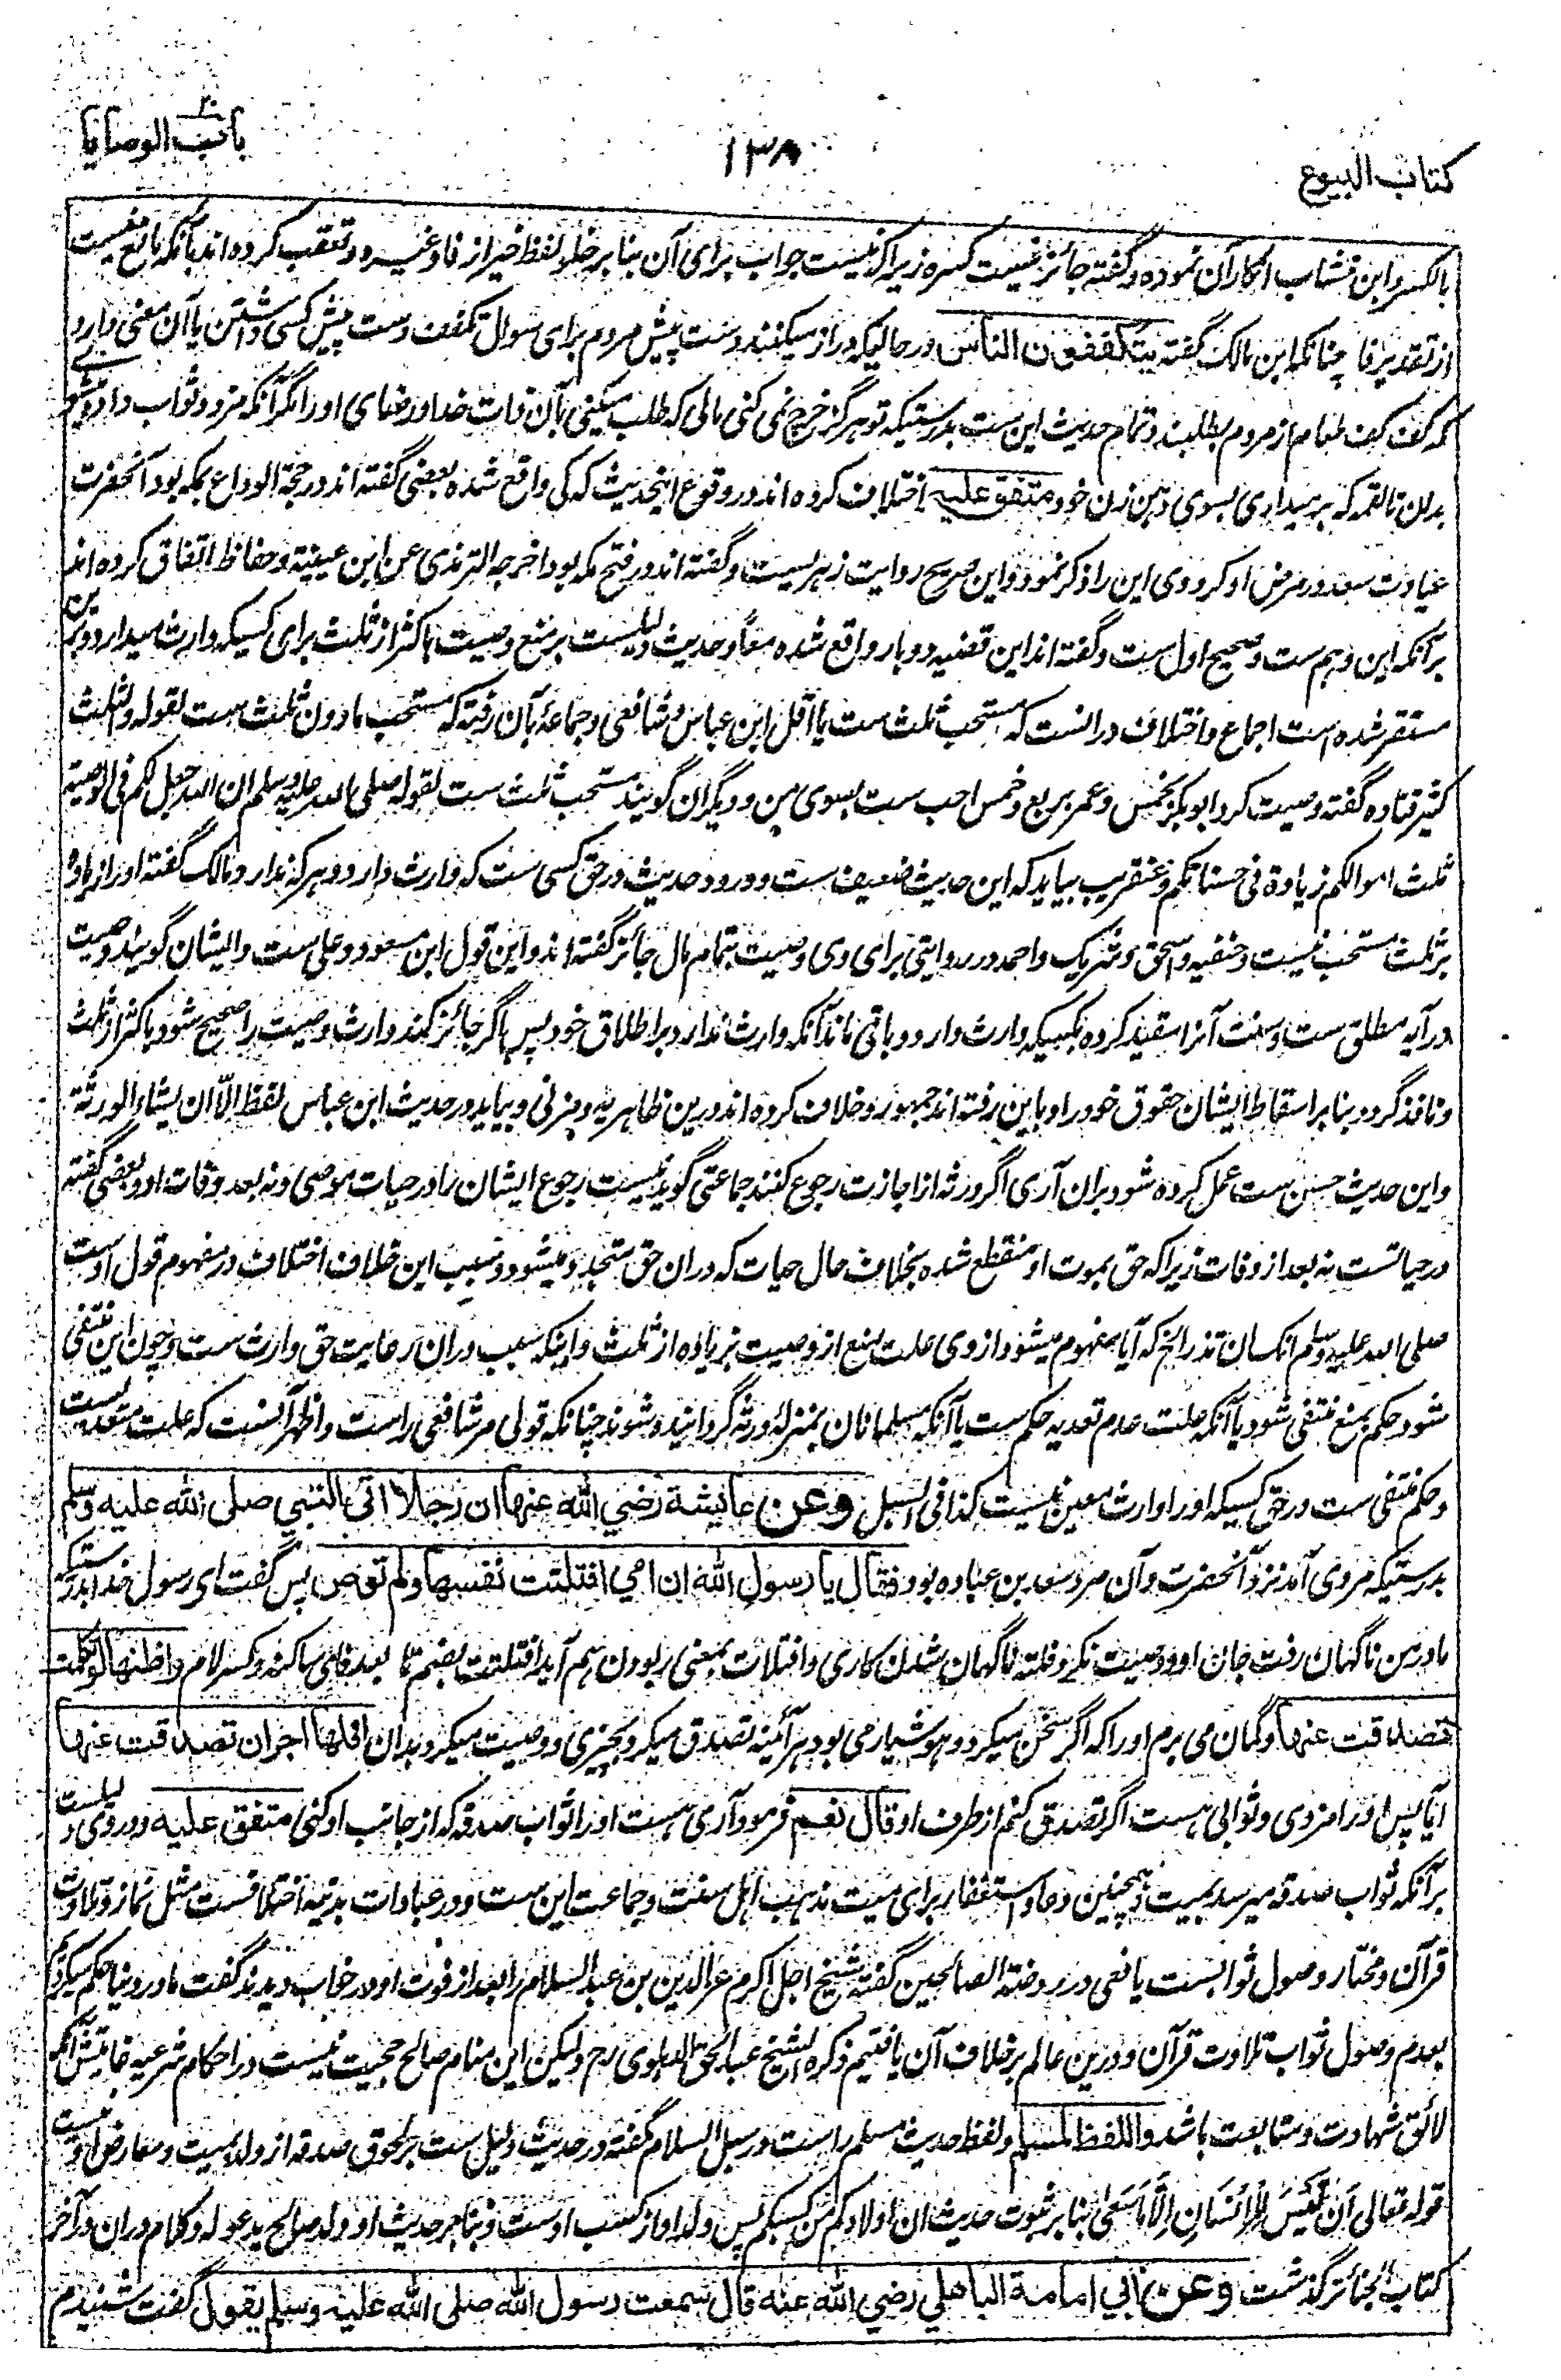 کتاب البیوع
۱۳۸
باب الوصایا
بالکسر و ابن خشاب انکار آن نموده و گفته جائز نیست کسره زیرا که نیست جواب برای آن بنا بر خلو لفظ خیر از فا و غیره و تعقب کرده اند بآنکه مانع نیست
از تقدیر فا چنانکه ابن مالک گفته یتکففون الناس در حالیکه دراز میکنند دست پیش مردم برای سوال تکفف دست پیش کسی داشتن یا آن معنی دارد
که کف کف طعام از مردم بطلبند و تمام حدیث این ست بدرستیکه تو هرگز خرچ نمی کنی مالی که طلب میکنی بآن ذات خدا و رضای او را مگر آنکه مزد و ثواب داده میشوی
بدان تا لقمه که بر میداری بسوی دهن زن خود متفق علیه اختلاف کرده اند در وقوع اینحدیث که کی واقع شده بعضی گفته اند در حجة الوداع بمکه بود آنحضرت
عیادت سعد در مرض او کرد و وی این را ذکر نمود و این صریح روایت زهریست و گفته اند در فتح مکه بود اخرجه الترمذی عن ابن عیینة و حفاظ اتفاق کرده اند
برآنکه این وهم ست و صحیح اول ست و گفته اند این قضیه دو بار واقع شده معاً و حدیث دلیلست بر منع وصیت باکثر از ثلث برای کسیکه وارث میدارد و برین
مستقر شده است اجماع و اختلاف در انست که مستحب ثلث ست یا اقل ابن عباس و شافعی و جماعۀ بآن رفته که مستحب مادون ثلث ست لقوله والثلث
کثیر قتاده گفته وصیت کرد ابوبکر بخمس و عمر بربع و خمس احب ست بسوی من و دیگران گویند مستحب ثلث ست لقوله صلی الله علیه وسلم ان الله جعل لکم فی الوصیة
ثلث اموالکم زیادة فی حسناتکم و عنقریب بیاید که این حدیث ضعیف ست و ورود حدیث در حق کسی ست که وارث دارد و هر که ندارد مالک گفته او را زیاده
بر ثلث مستحب نیست و حنفیه و اسحق و شریک و احمد در روایتی برای وی وصیت بتمام مال جائز گفته اند و این قول ابن مسعود و علی ست و ایشان گویند وصیت
در آیه مطلق ست و سنت آنرا مقید کرده بکسیکه وارث دارد و باقی ماند آنکه وارث ندارد بر اطلاق خود پس اگر جائز کند وارث وصیت را صحیح شود باکثر از ثلث
و نافذ گردد بنا بر اسقاط ایشان حقوق خود را و باین رفته اند جمهور و خلاف کرده اند درین ظاهریه و مزنی و بیاید در حدیث ابن عباس لفظ الّا ان یشاء الورثة
و این حدیث حسن ست عمل کرده شود بران آری اگر ورثه از اجازت رجوع کنند جماعتی گویند نیست رجوع ایشان را در حیات موصی و نه بعد وفات او و بعضی گفته
در حیاتست نه بعد از وفات زیرا که حق بموت او منقطع شده بخلاف حال حیات که دران حق متجدد میشود و سبب این خلاف اختلاف در مفهوم قول اوست
صلی الله علیه وسلم انک ان تذر الخ که آیا مفهوم میشود از وی علت منع از وصیت بزیاده از ثلث و اینکه سبب دران رعایت حق وارث ست و چون این منتفی
شود حکم بمنع منتفی شود یا آنکه علت عدم تعدیه حکم ست یا آنکه مسلمانان بمنزلۀ ورثه گردانیده شوند چنانکه قولی مر شافعی راست و اظهر آنست که علت متعدیست
و حکم منتفی ست در حق کسیکه او را وارث معین نیست کذا فی السبل وعن عایشة رضي الله عنها ان رجلا اتی النبي صلی الله علیه وسلم
بدرستیکه مردی آمد نزد آنحضرت و آن مرد سعد بن عباده بود فقال یا رسول الله ان امي افتلتت نفسها ولم توص پس گفت ای رسول خدا بدرستیکه
مادر من ناگهان رفت جان او و وصیت نکرد فلتة ناگهان شدن کاری و افتلات بمعنی ربودن هم آید افتلتت بضم تا بعد فای ساکنه و کسر لام واظنها لو تکلمت
تصدقت عنها و گمان می برم او را که اگر سخن میکرد و هوشیار می بود هر آئینه تصدق میکرد بچیزی و وصیت میکرد بدان افلها اجر ان تصدقت عنها
آیا پس او را مزدی و ثوابی هست اگر تصدق کنم از طرف او قال نعم فرمود آری هست او را ثواب صدقه که از جانب او کنی متفق علیه و در وی دلیلست
برآنکه ثواب صدقه میرسد بمیت و همچنین دعا و استغفار برای میت مذهب اهل سنت و جماعت این ست و در عبادات بدنیه اختلافست مثل نماز و تلاوت
قرآن و مختار وصول ثوابست یافعی در روضة الصالحین گفته شیخ اجل اکرم عز الدین بن عبد السلام را بعد از فوت او در خواب دیدند گفت ما در دنیا حکم میکردیم
بعدم وصول ثواب تلاوت قرآن و درین عالم برخلاف آن یافتیم ذکره الشیخ عبد الحق الدهلوی رح ولیکن این منام صالح حجیت نیست در احکام شرعیه غایتش آنکه
لائق شهادت و متابعت باشد واللفظ لمسلم و لفظ حدیث مسلم راست در سبل السلام گفته در حدیث دلیل ست بر لحوق صدقه از ولد بمیت و معارض او نیست
قوله تعالی اَن لَّیْسَ لِلْاِنْسَانِ اِلَّا مَا سَعٰی بنا بر ثبوت حدیث ان اولادکم من کسبکم پس ولد او از کسب اوست و بنا بر حدیث او ولد صالح یدعو له و کلام دران در آخر
کتاب الجنائز گذشت وعن ابي امامة الباهلي رضي الله عنه قال سمعت رسول الله صلی الله علیه وسلم یقول گفت شنیدم